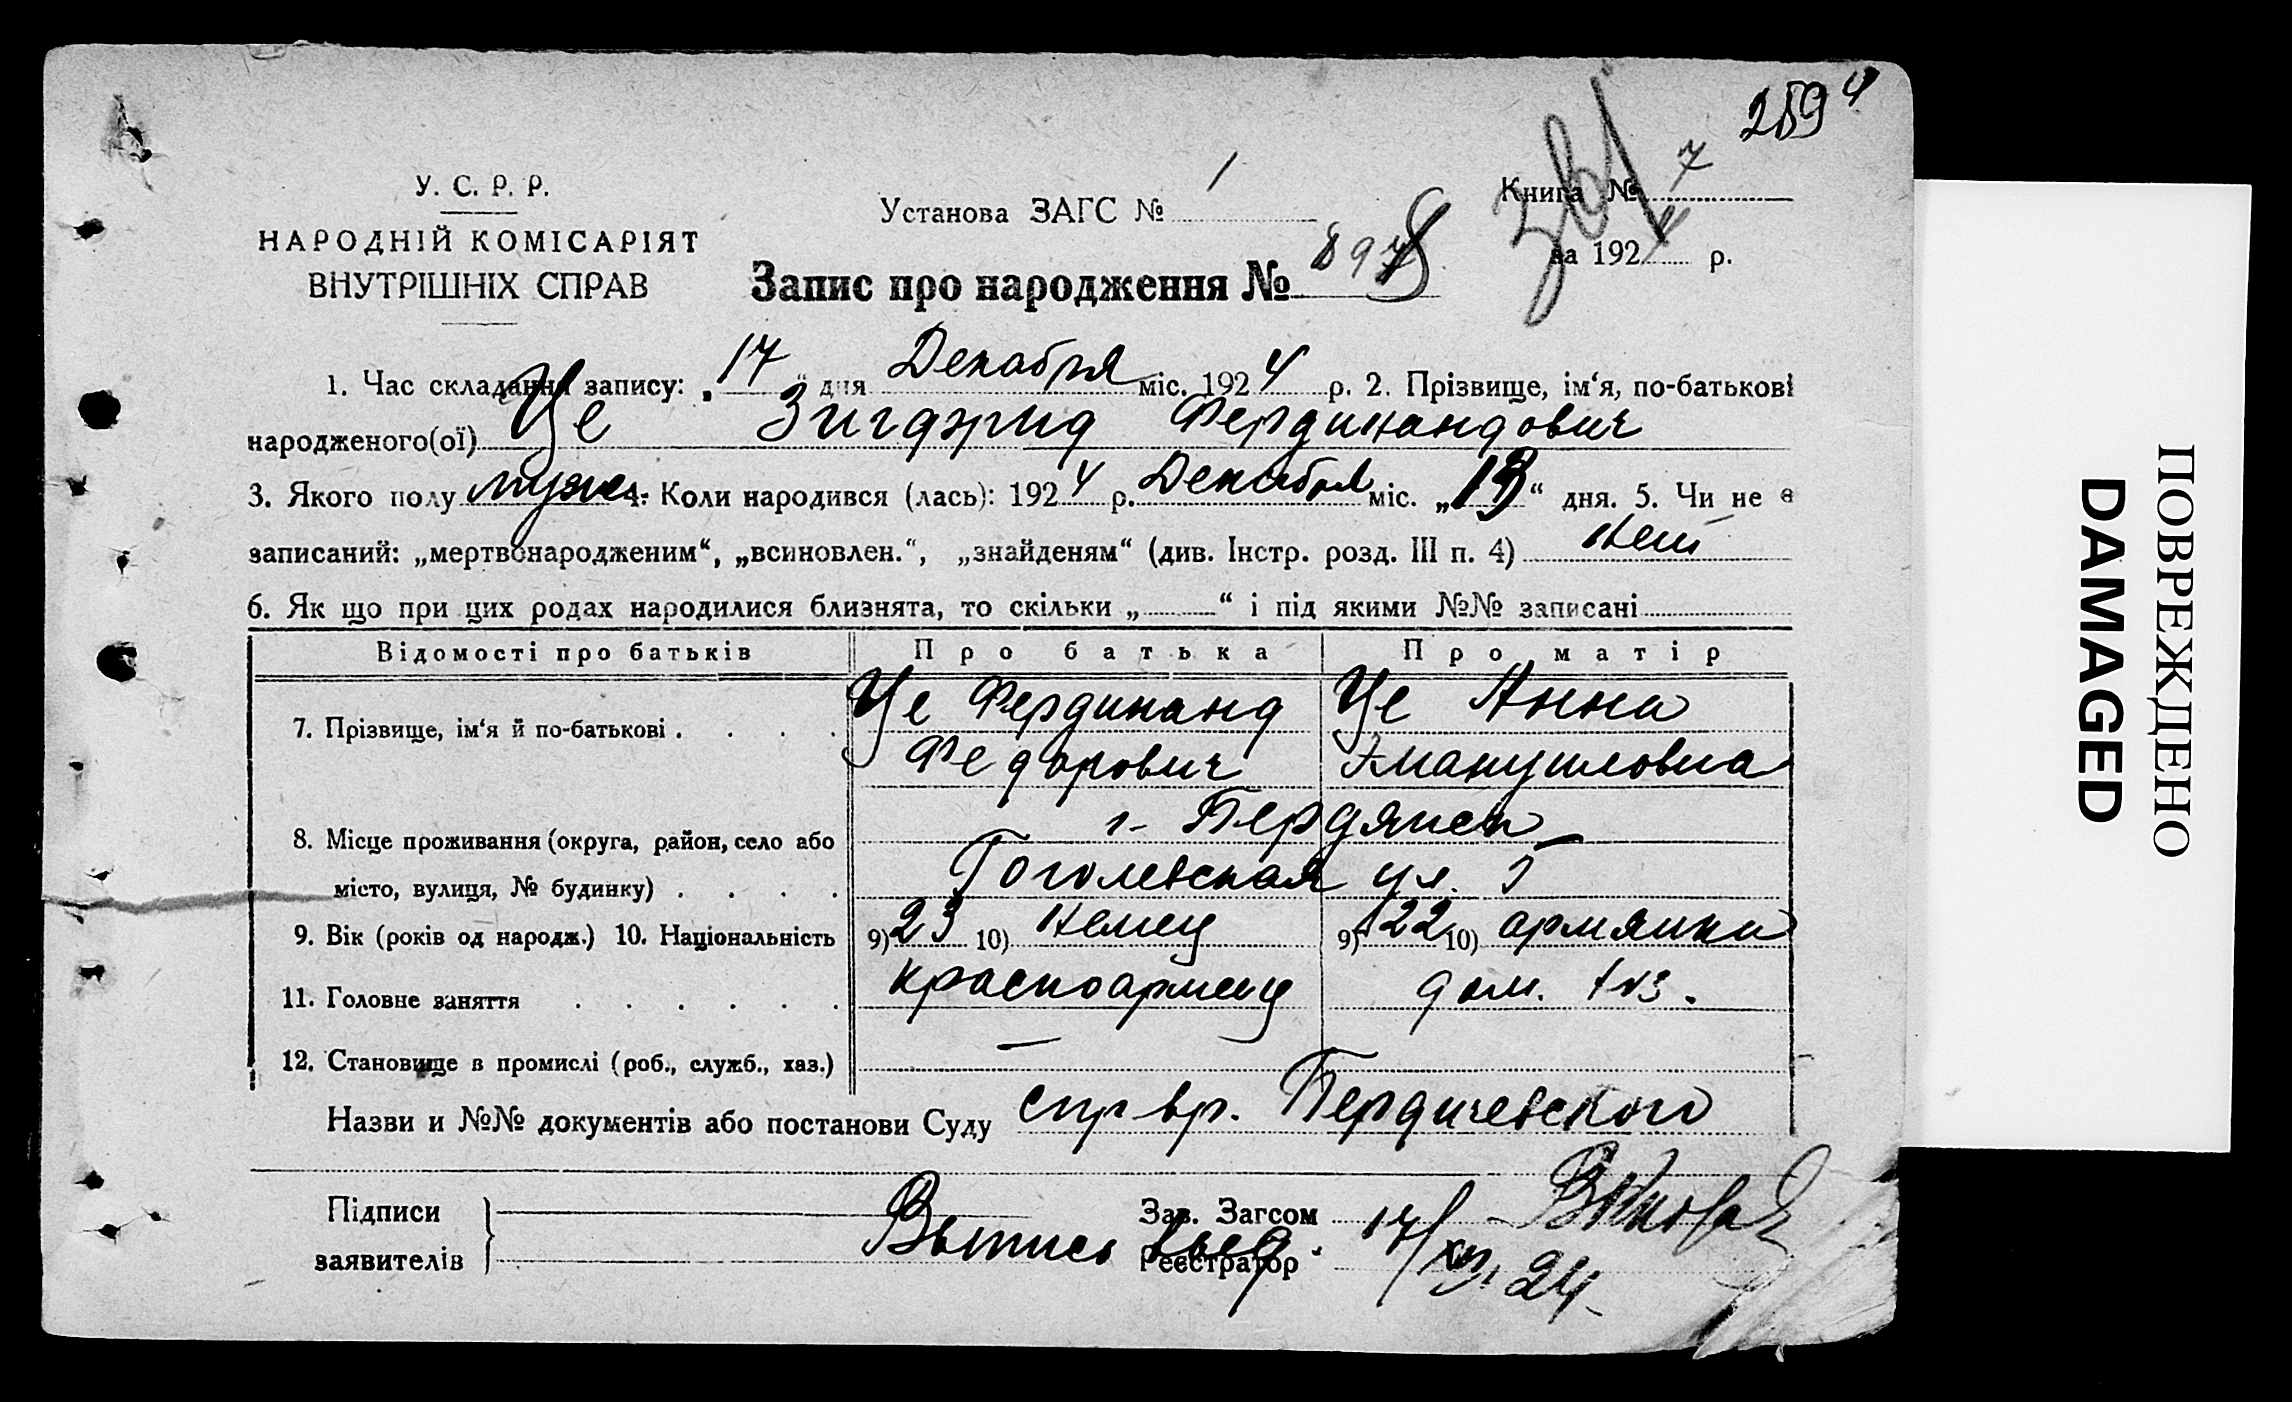 259 ч
361
У. С. Р. Р.
НАРОДНІЙ КОМІСАРІЯТ
ВНУТРІШНІХ СПРАВ
Установа ЗАГС № 1
Книга № 7
за 1924 р.
Запис про народження №
1. Час складання запису: „17“ дня Декабря міс. 1924 р. 2. Прізвище, ім‘я, по-батькові
народженого(ої) Це Зигфрид Фердинандович
3. Якого полу муж. 4. Коли народився (лась): 1924 р. Декабря міс. „13“ дня. 5. Чи не є
записаний: „мертвонародженим“, „всиновлен.“, „знайденям“ (див. Інстр. розд. III п. 4) нет
6. Як що при цих родах народилися близнята, то скільки „ “ і під якими №№ записані
Відомості про батьків Про батька Про матір
7. Прізвище, ім‘я й по-батькові . . . . Це Фердинанд Це Анна
Федорович Эмануиловна
8. Місце проживання (округа, район, село або г. Бердянск
місто, вулиця, № будинку) . . . . Гоголевская ул. 5
9. Вік (років од народж.) 10. Національність 9) 23 10) немец 9) 22 10) армянка
11. Головне заняття . . . . . . красноармеец дом. хоз.
12. Становище в промислі (роб., служб., хаз.) —
Назви и №№ документів або постанови Суду спр вр. Бердичевского
Підписи
заявителів
Зав. Загсом
Выпись выд.
Реєстратор
17/XII 24
ПОВРЕЖДЕНО
DAMAGED